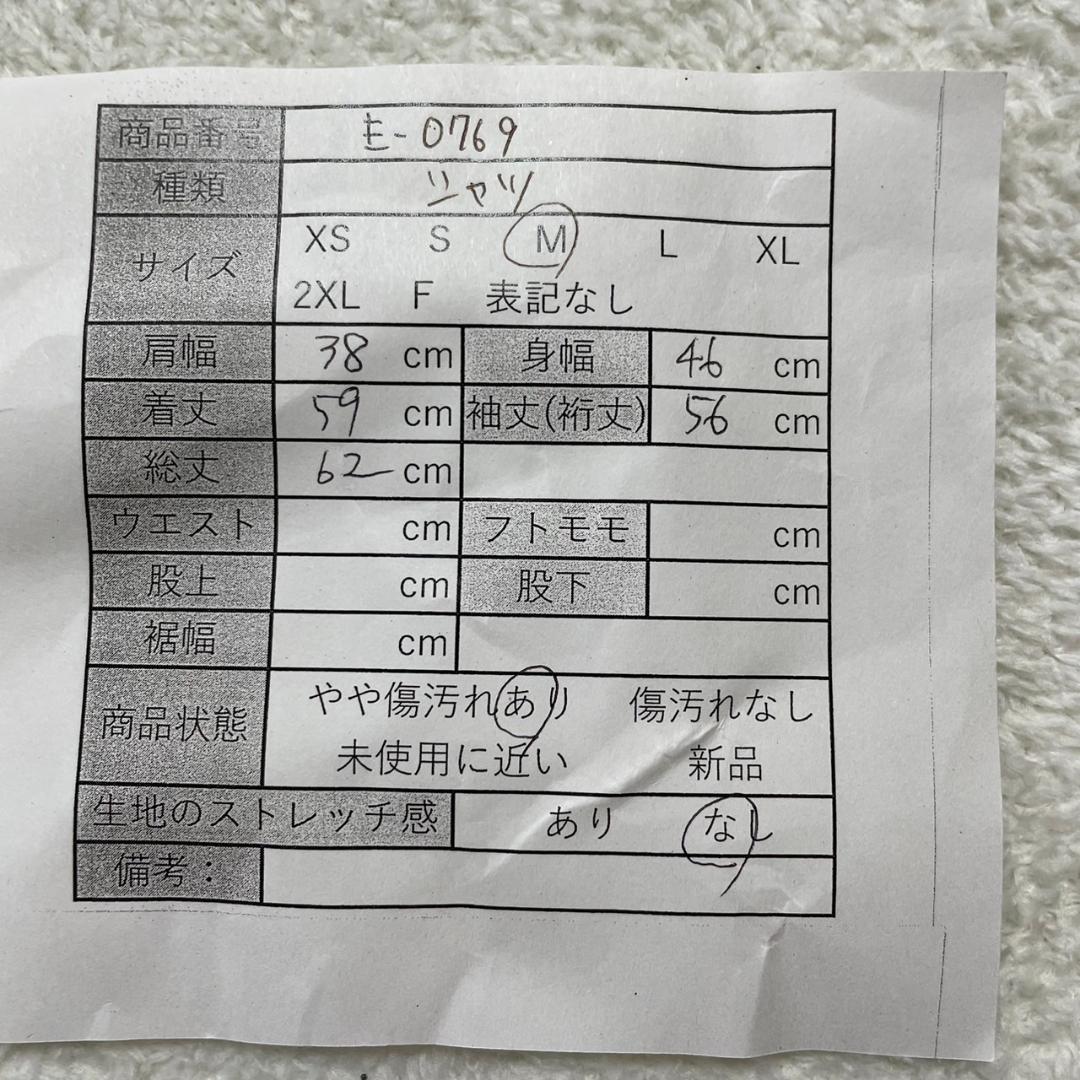 商品番号 E-0769
種類 シャツ
サイズ XS S M L XL
2XL F 表記なし
肩幅 38 cm 身幅 46 cm
着丈 59 cm 袖丈(裄丈) 56 cm
総丈 62 cm
ウエスト cm フトモモ cm
股上 cm 股下 cm
裾幅 cm
商品状態 やや傷汚れあり 傷汚れなし
未使用に近い 新品
生地のストレッチ感 あり なし
備考：